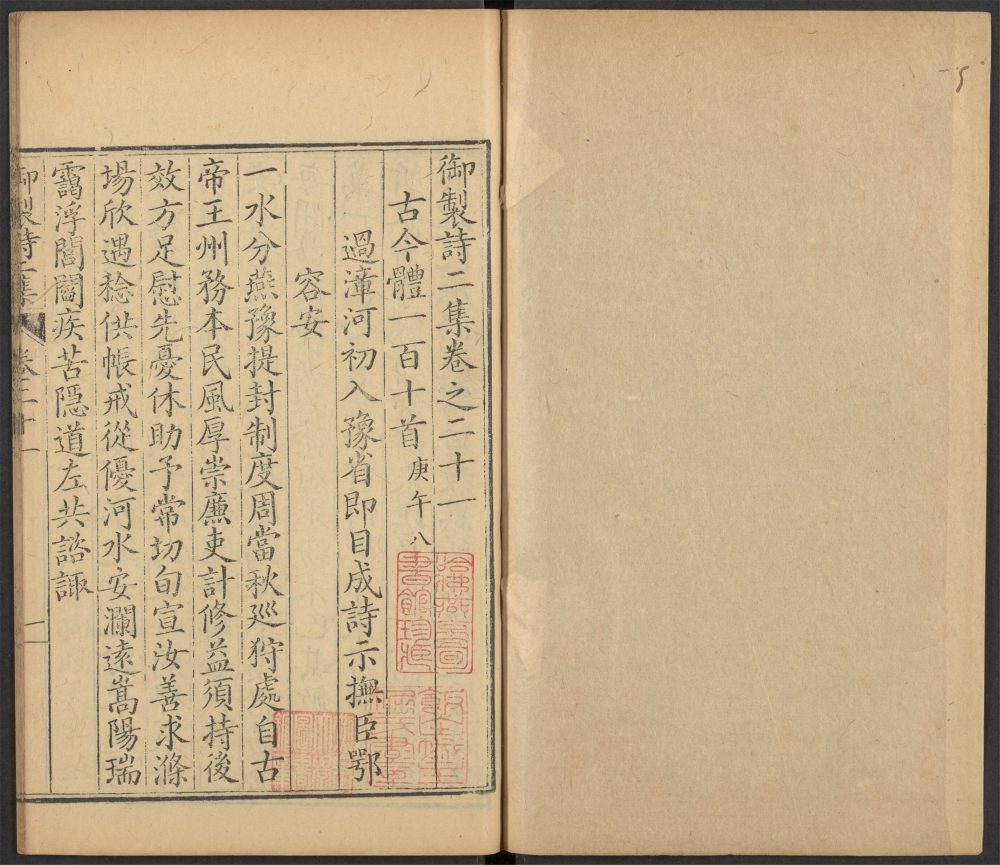 御製詩二集卷之二十一
古今體一百十首庚午八
過漳河初入豫省即目成詩示撫臣鄂
容安
一水分燕豫提封制度周當秋巡狩處自古
帝王州務本民風厚崇廉吏計修益須持後
效方足慰先憂休助予常切旬宣汝善求滌
場欣遇稔供帳戒從優河水安瀾遠嵩陽瑞
靄浮閭閻疾苦隱道左共諮諏
御製詩二集
卷二十一
一
哈佛燕京圖
書館珍藏